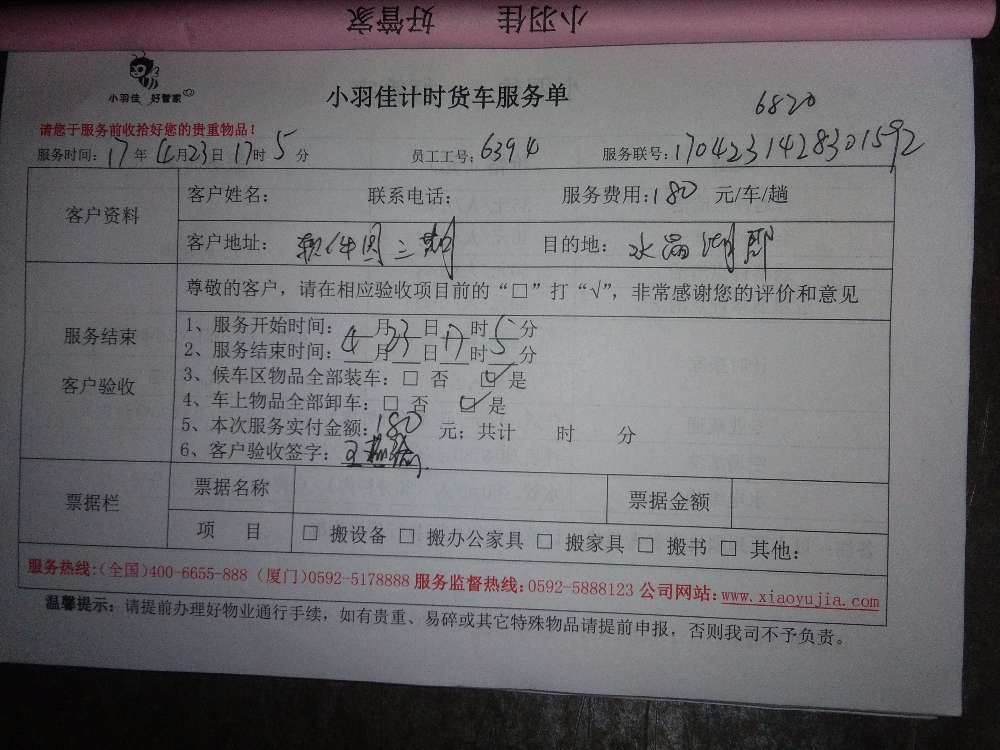 小羽佳 好管家
小羽佳 好管家
小羽佳计时货车服务单
6820
请您于服务前收拾好您的贵重物品！
服务时间：17年4月23日17时5分 员工工号：6394 服务联号：1704231428301592
客户资料
客户姓名： 联系电话： 服务费用：180 元/车/趟
客户地址： 软件园三期 目的地： 水晶湖郡
服务结束
客户验收
尊敬的客户，请在相应验收项目前的“□”打“√”，非常感谢您的评价和意见
1、服务开始时间：4月23日17时5分
2、服务结束时间：4月23日17时5分
3、候车区物品全部装车：□ 否 ☑ 是
4、车上物品全部卸车：□ 否 ☑ 是
5、本次服务实付金额：180 元；共计 时 分
6、客户验收签字：
票据栏
票据名称 票据金额
项 目 □ 搬设备 □ 搬办公家具 □ 搬家具 □ 搬书 □ 其他：
服务热线：(全国)400-6655-888 (厦门)0592-5178888 服务监督热线：0592-5888123 公司网站：www.xiaoyujia.com
温馨提示：请提前办理好物业通行手续，如有贵重、易碎或其它特殊物品请提前申报，否则我司不予负责。